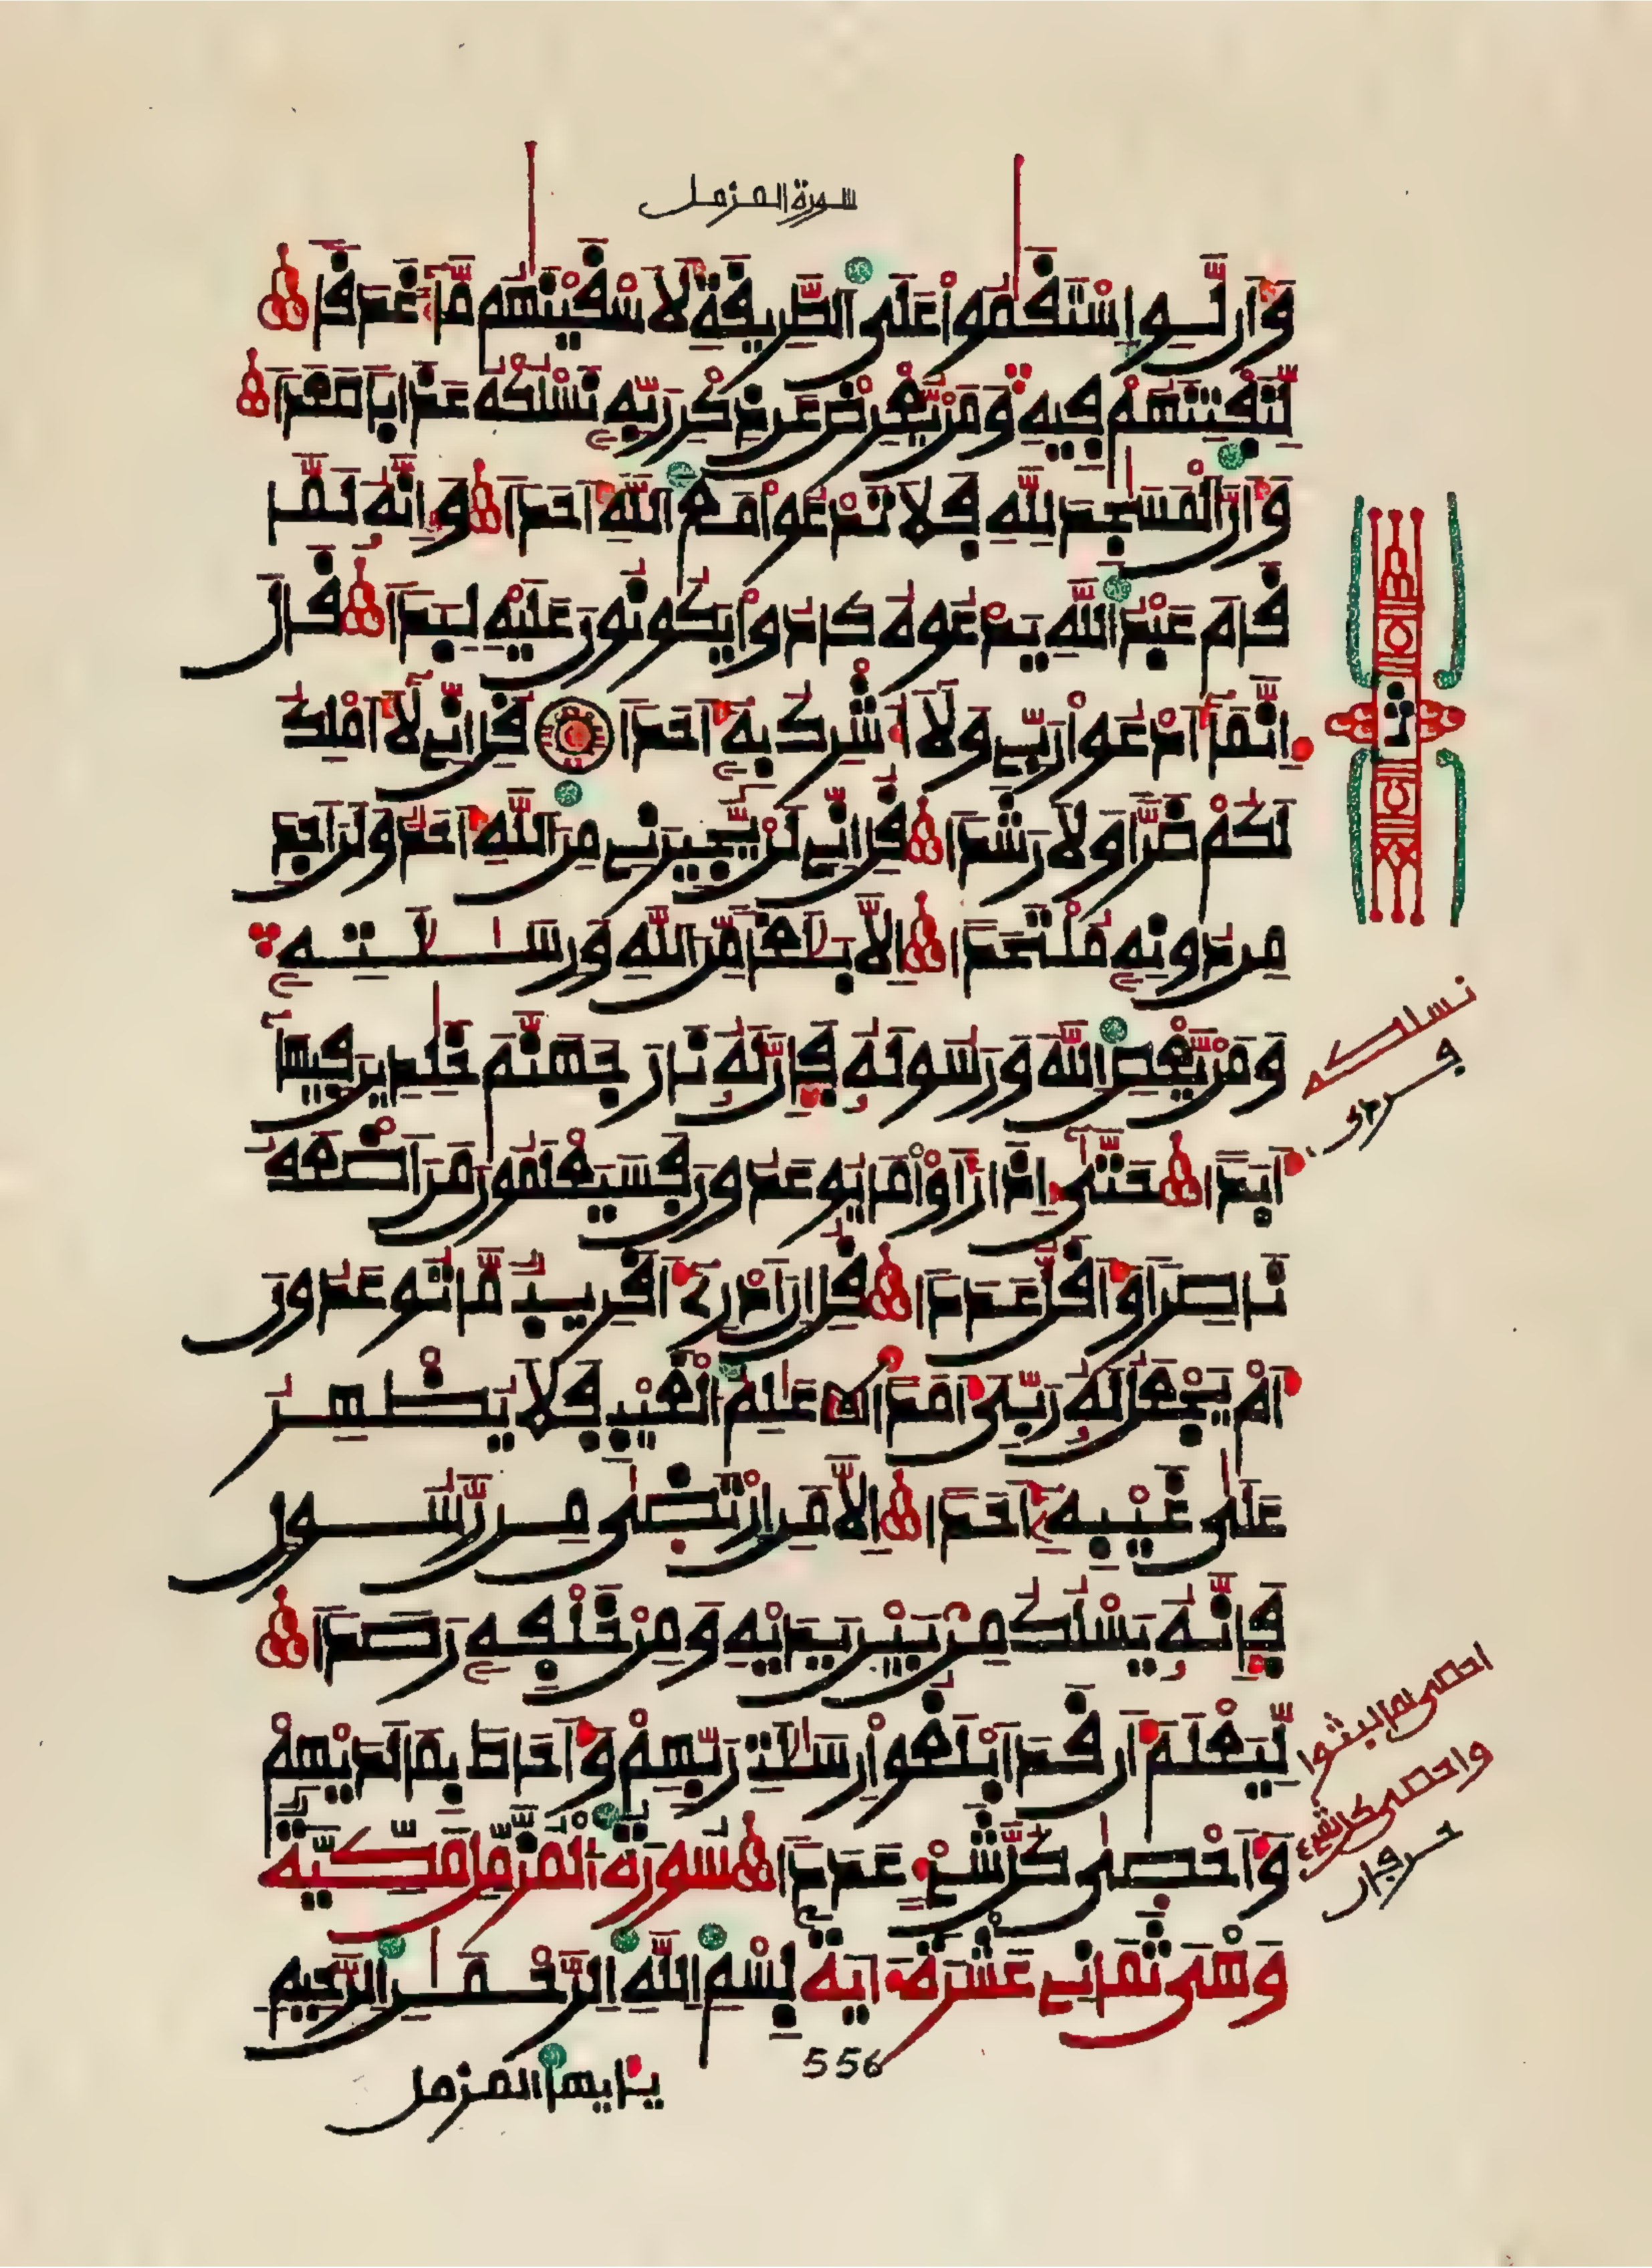 سورة المزمل
وَأَن لَّوِ اِسْتَقَٰمُوا۟ عَلَى اَلطَّرِيقَةِ لَأَسْقَيْنَٰهُم مَّآءً غَدَقًا
لِّنَفْتِنَهُمْ فِيهِ وَمَنْ يُّعْرِضْ عَن ذِكْرِ رَبِّهِۦ نَسْلُكْهُ عَذَابًا صَعَدًا
وَأَنَّ اَلْمَسَٰجِدَ لِلهِ فَلَا تَدْعُوا۟ مَعَ اَللَّهِ أَحَدًا وَإِنَّهُۥ لَمَّا
قَامَ عَبْدُ اُللَّهِ يَدْعُوهُ كَادُوا۟ يَكُونُونَ عَلَيْهِ لِبَدًا قَالَ
إِنَّمَآ أَدْعُوا۟ رَبِّى وَلَآ أُشْرِكُ بِهِۦٓ أَحَدًا قُلْ إِنِّى لَآ أَمْلِكُ
لَكُمْ ضَرًّا وَلَا رَشَدًا قُلْ إِنِّى لَنْ يُّجِيرَنِى مِنَ اَللَّهِ أَحَدٌ وَلَنْ أَجِدَ
مِن دُونِهِۦ مُلْتَحَدًا إِلَّا بَلَٰغًا مِّنَ اَللَّهِ وَرِسَٰلَٰتِهِۦ
وَمَنْ يَّعْصِ اِللَّهَ وَرَسُولَهُۥ فَإِنَّ لَهُۥ نَارَ جَهَنَّمَ خَٰلِدِينَ فِيهَآ
أَبَدًا حَتَّىٰٓ إِذَا رَأَوْا۟ مَا يُوعَدُونَ فَسَيَعْلَمُونَ مَنْ أَضْعَفُ
نَاصِرًا وَأَقَلُّ عَدَدًا قُلْ إِنْ أَدْرِىٓ أَقَرِيبٌ مَّا تُوعَدُونَ
أَمْ يَجْعَلُ لَهُۥ رَبِّىَ أَمَدًا عَٰلِمُ اُلْغَيْبِ فَلَا يُظْهِرُ
عَلَىٰ غَيْبِهِۦٓ أَحَدًا إِلَّا مَنِ اِرْتَضَىٰ مِن رَّسُولٍ
فَإِنَّهُۥ يَسْلُكُ مِنۢ بَيْنِ يَدَيْهِ وَمِنْ خَلْفِهِۦ رَصَدًا
لِّيَعْلَمَ أَن قَدْ أَبْلَغُوا۟ رِسَٰلَٰتِ رَبِّهِمْ وَأَحَاطَ بِمَا لَدَيْهِمْ
وَأَحْصَىٰ كُلَّ شَىْءٍ عَدَدًا سُورَةُ اُلْمُزَّمِّلِ مَكِّيَّةٌ
وَهْىَ ثَمَانِى عَشْرَةَ ءَايَةً بِسْمِ اِللَّهِ اِلرَّحْمَٰنِ اِلرَّحِيمِ
556
يَٰأيها المزمل
ثمن
نسلكه
احصى لما لبثوا
واحصى كل شىء